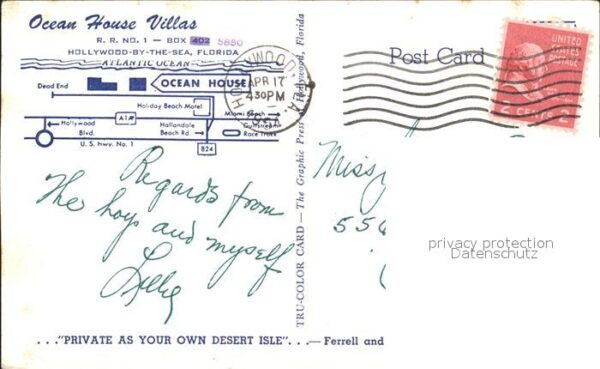 Ocean House Villas
R. R. NO. 1 — BOX 402 5850
HOLLYWOOD-BY-THE-SEA, FLORIDA
ATLANTIC OCEAN
Dead End
OCEAN HOUSE
Holiday Beach Motel
A1A
Miami Beach
Hollywood
Blvd.
Hallandale
Beach Rd.
Gulfstream
Race Track
U.S. Hwy. No. 1
824
Regards from
The boys and myself
TRU-COLOR CARD — The Graphic Press, Hollywood, Florida
HOLLYWOOD, FLA.
APR 17
430PM
Post Card
UNITED
STATES
POSTAGE
2 CENTS 2
Miss
55
privacy protection
Datenschutz
..."PRIVATE AS YOUR OWN DESERT ISLE"...— Ferrell and